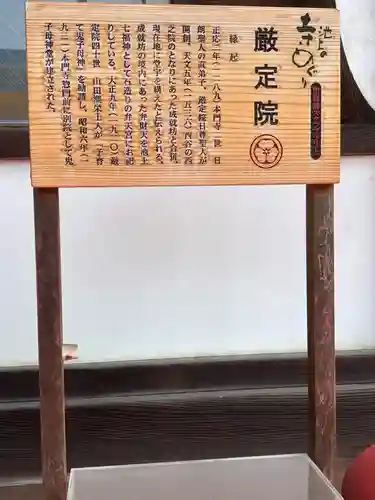 池上の
寺めぐり
厳定院
縁起
正応二年(一二八九)本門寺二世日
朗聖人の直弟子、厳定院日尊聖人が
開創。天文五年(一五三六)西谷の西
之院のとなりにあった成就坊と合併、
現在地に堂宇を構えたと伝えられる。
成就坊の境内にあった弁財天を池上
七福神として石造りの弁天堂にお祀
りしている。大正九年(一九二〇)厳
定院四十世 山田潮弥上人が「子育
て鬼子母神」を勧請し、昭和六年(一
九三一)本門寺惣門前に別院として鬼
子母神堂が建立された。